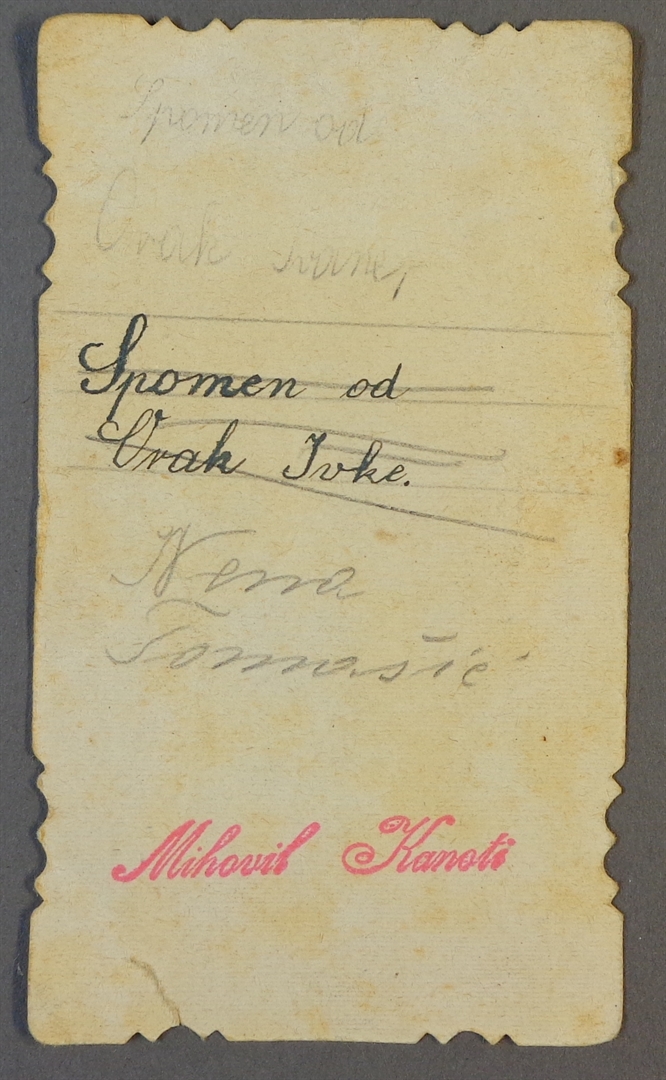 Spomen od
Orak Ivke,
Spomen od
Orak Ivke.
Nena
Tomašić
Mihovil Kanoti